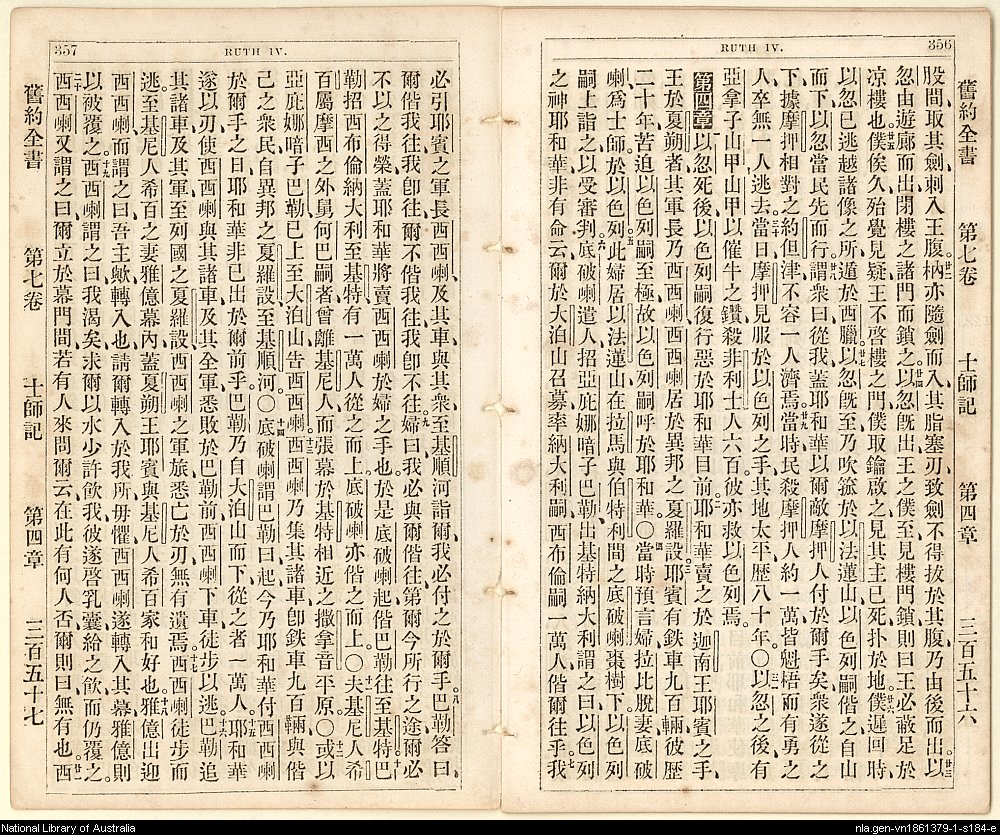 356
RUTH IV.
舊約全書 第七卷 士師記 第四章 三百五十六
股間、取其劍刺入王腹、廿二柄亦隨劍而入、其脂塞刃、致劍不得拔於其腹、乃由後而出、廿三以
忽由遊廊而出、閉樓之諸門而鎖之、廿四以忽旣出、王之僕至、見樓門鎖、則曰王必蔽足於
凉樓也、廿五僕俟久、殆覺見疑、王不啓樓之門、僕取鑰啟之、見其主已死、扑於地、廿六僕遲回時、
以忽已逃、越諸像之所、遁於西臘、廿七以忽旣至、乃吹篍於以法蓮山、以色列嗣偕之自山
而下、以忽當民先而行、廿八謂衆曰、從我、蓋耶和華以爾敵摩押人付於爾手矣、衆遂從之
下、據摩押相對之約但津、不容一人濟焉、廿九當時民殺摩押人約一萬、皆魁梧而有勇之
人、卒無一人逃去、三十當日摩押見服於以色列之手、其地太平歷八十年。○三一以忽之後、有
亞拿子山甲、山甲以催牛之鑽、殺非利士人六百、彼亦救以色列焉。
第四章 以忽死後、以色列嗣復行惡於耶和華目前、二耶和華賣之於迦南王耶賓之手、
王於夏朔者、其軍長乃西西喇、西西喇居於異邦之夏羅設、三耶賓有鉄車九百輛、彼歷
二十年、苦迫以色列嗣至極、故以色列嗣呼於耶和華。○四當時預言婦拉比脫妻底破
喇、為士師於以色列、五此婦居以法蓮山、在拉馬與伯特利間之底破喇棗樹下、以色列
嗣上詣之以受審判、六底破喇遣人招亞庇娜暗子巴勒、出基特納大利、謂之曰、以色列
之神耶和華、非有命云、爾於大泊山召募、率納大利嗣、西布倫嗣、一萬人偕爾往乎、七我
357
RUTH IV.
必引耶賓之軍長西西喇、及其車與其衆、至基順河詣爾、我必付之於爾手、八巴勒答曰、
爾偕我往、我卽往、爾不偕我往、我卽不往、九婦曰、我必與爾偕往、第爾今所行之途、爾必
不以之得榮、蓋耶和華將賣西西喇於婦之手也、於是底破喇起、偕巴勒往至基特、十巴
勒招西布倫納大利至基特、有一萬人從之而上、底破喇亦偕之而上。○十一夫基尼人希
百、屬摩西之外舅何巴嗣者、曾離基尼人、而張幕於基特相近之撒拿音平原。○十二或以
亞庇娜暗子巴勒已上至大泊山、告西西喇、十三西西喇乃集其諸車、卽鉄車九百輛、與偕
己之衆民、自異邦之夏羅設、至基順河。○十四底破喇謂巴勒曰、起、今乃耶和華付西西喇
於爾手之日、耶和華非已出於爾前乎、巴勒乃自大泊山而下、從之者一萬人、十五耶和華
遂以刃使西西喇與其諸車及其全軍悉敗於巴勒前、西西喇下車徒步以逃、十六巴勒追
其諸車及其軍、至列國之夏羅設、西西喇之軍旅悉亡於刃、無有遺焉、十七西西喇徒步而
逃、至基尼人希百之妻雅億幕內、蓋夏朔王耶賓與基尼人希百家和好也、十八雅億出迎
西西喇而謂之曰、吾主歟、轉入也、請爾轉入於我所、毋懼、西西喇遂轉入其幕、雅億則
以被覆之、十九西西喇謂之曰、我渴矣、求爾以水少許飲我、彼遂啓乳囊給之飲、而仍覆之、
二十西西喇又謂之曰、爾立於幕門間、若有人來問爾云、在此有何人否、爾則曰、無有也、廿一西
舊約全書 第七卷 士師記 第四章 三百五十七
National Library of Australia
nla.gen-vn1861379-1-s184-e